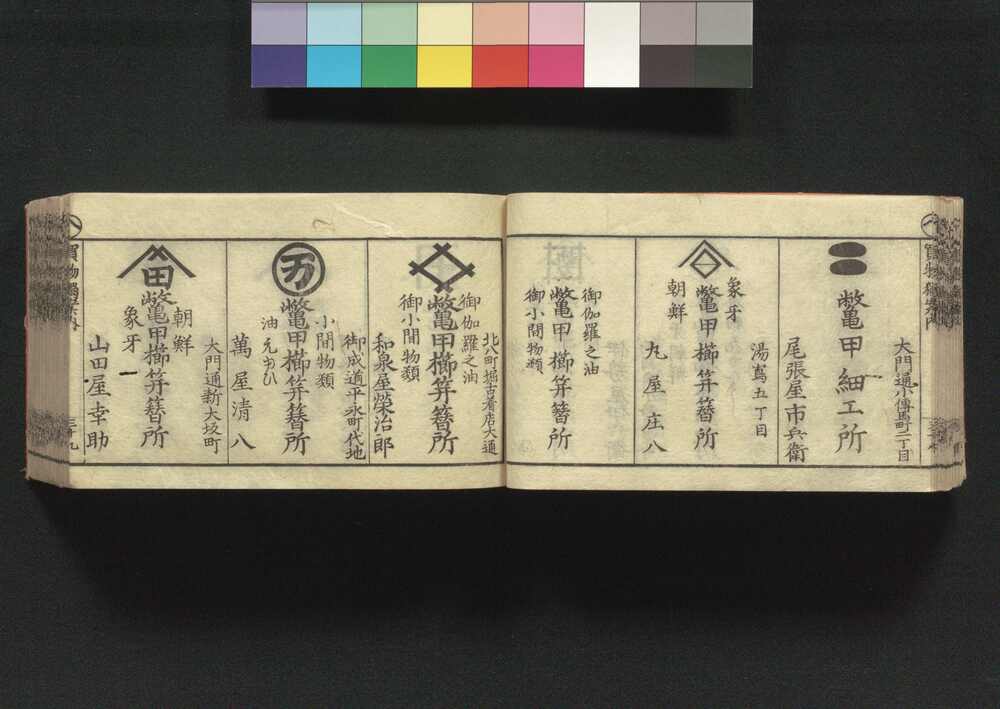 大門通小傳馬町二丁目
鼈甲細工所
尾張屋市兵衛
湯嶌五丁目
象牙
朝鮮
鼈甲櫛笄簪所
九屋庄八
御伽羅之油
鼈甲櫛笄簪所
御小間物類
北八町堀古着店大通
御伽羅之油
鼈甲櫛笄簪所
御小間物類
和泉屋榮治郎
御成道平永町代地
小間物類
万
鼈甲櫛笄簪所
油元ゆひ
萬屋清八
大門通新大坂町
田
朝鮮
鼈甲櫛笄簪所
象牙
山田屋幸助